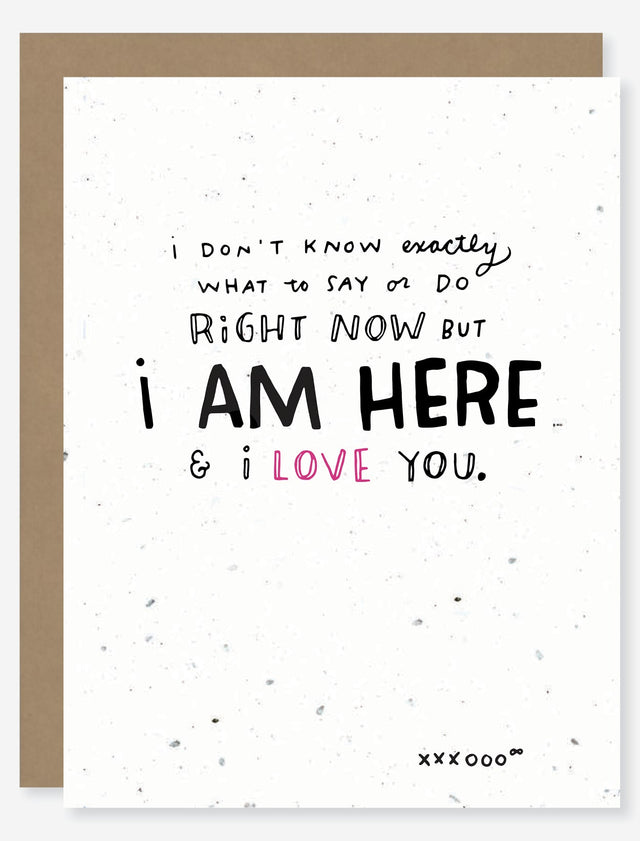 i DON'T KNOW exactly
WHAT to SAY or DO
RiGHT NOW BUT
i AM HERE
& i LOVE YOU.
xxxooo∞